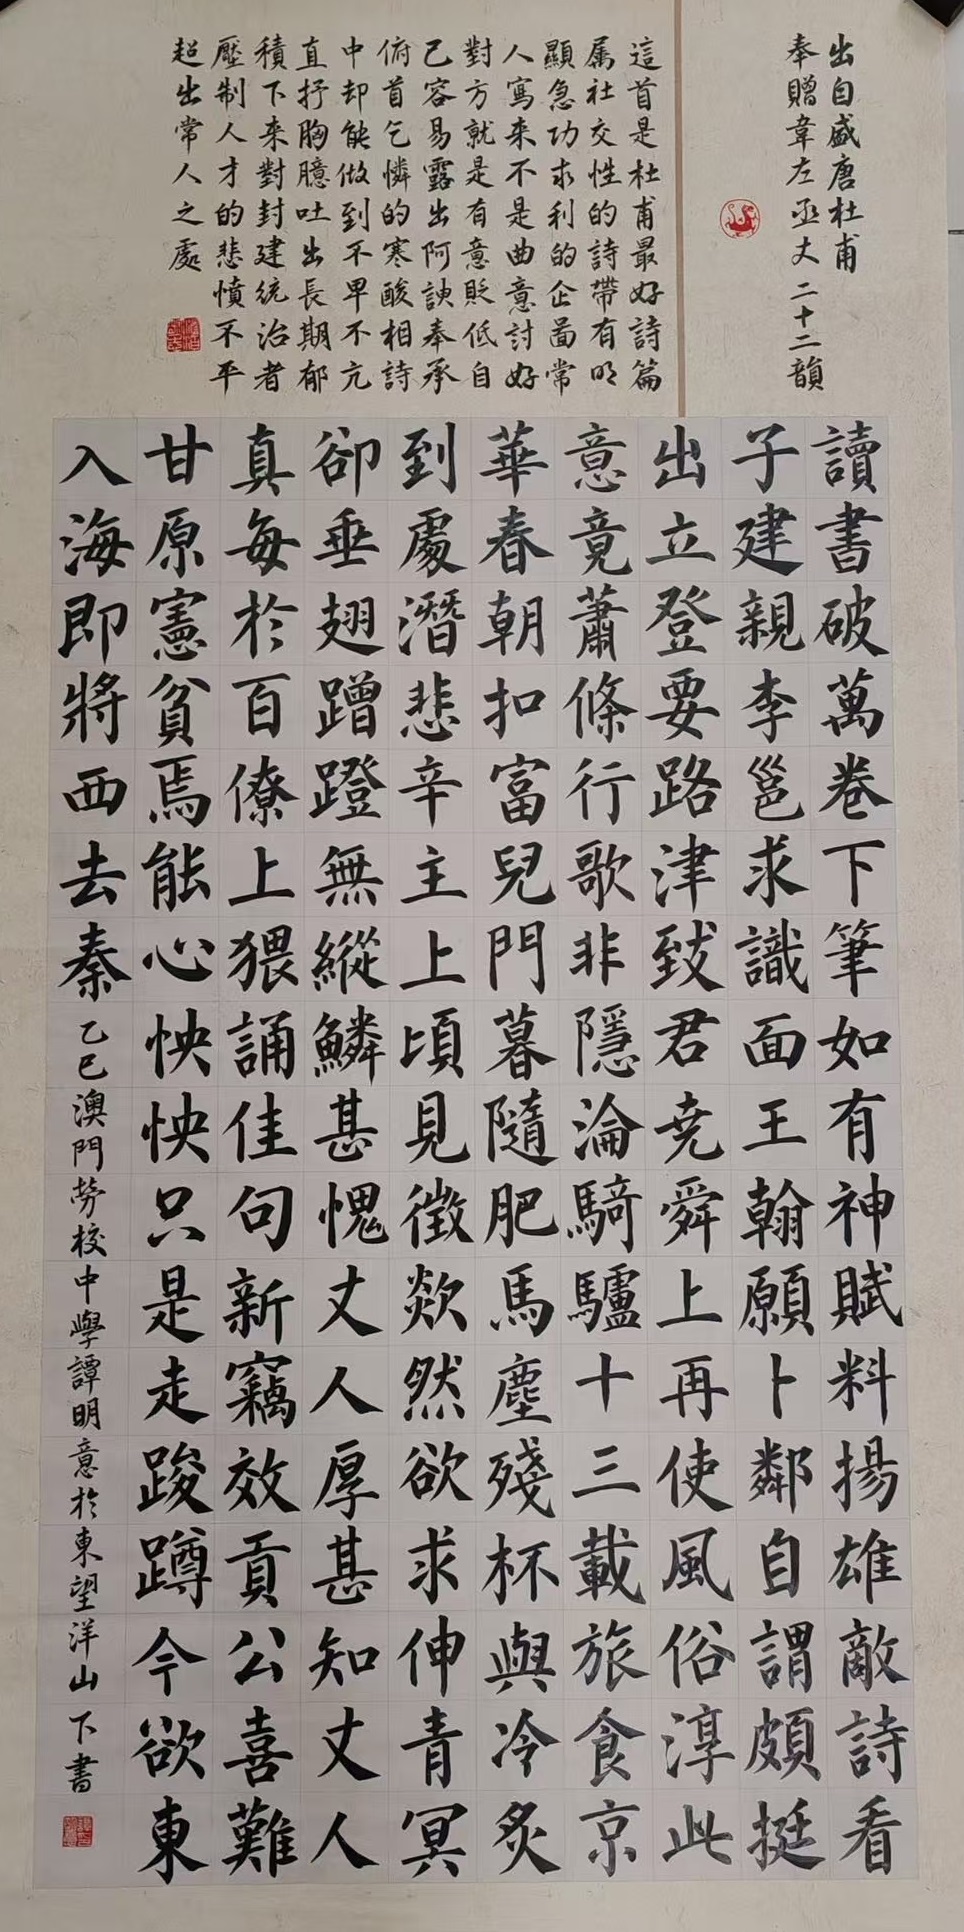 出自盛唐杜甫
奉贈韋左丞丈 二十二韻
這首是杜甫最好詩篇
属社交性的詩帶有明
顯急功求利的企圖常
人寫来不是曲意討好
對方就是有意貶低自
己容易露出阿諛奉承
俯首乞憐的寒酸相詩
中却能做到不卑不亢
直抒胸臆吐出長期郁
積下来對封建統治者
壓制人才的悲憤不平
超出常人之處
讀書破萬卷下筆如有神賦料揚雄敵詩看
子建親李邕求識面王翰願卜鄰自謂頗挺
出立登要路津致君尭舜上再使風俗淳此
意竟蕭條行歌非隱淪騎驢十三載旅食京
華春朝扣富兒門暮隨肥馬塵殘杯與冷炙
到處潛悲辛主上頃見徵欻然欲求伸青冥
卻垂翅蹭蹬無縱鱗甚愧丈人厚甚知丈人
真每於百僚上猥誦佳句新竊效貢公喜難
甘原憲貧焉能心怏怏只是走踆蹲今欲東
入海即將西去秦 乙巳澳門勞校中學譚明意於東望洋山下書